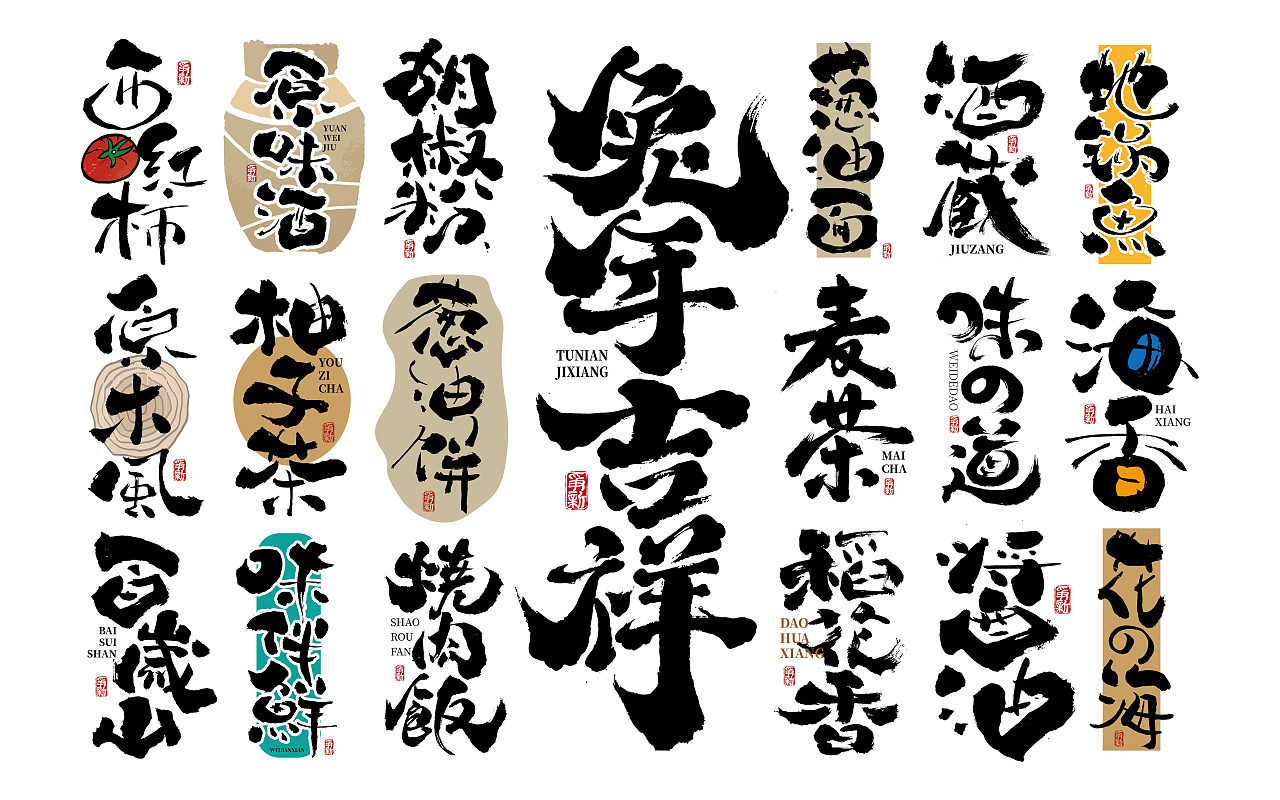 西紅柿
原味酒
YUAN
WEI
JIU
胡椒粉
兔年吉祥
TUNIAN
JIXIANG
葱油面
酒藏
JIUZANG
地锅鱼
原木風
柚子茶
YOU
ZI
CHA
葱油饼
麦茶
MAI
CHA
味の道
WEIDEDAO
海香
HAI
XIANG
百歲山
BAI
SUI
SHAN
味拌鲜
WEIBANXIAN
燒肉飯
SHAO
ROU
FAN
稻花香
DAO
HUA
XIANG
醬油
花の海